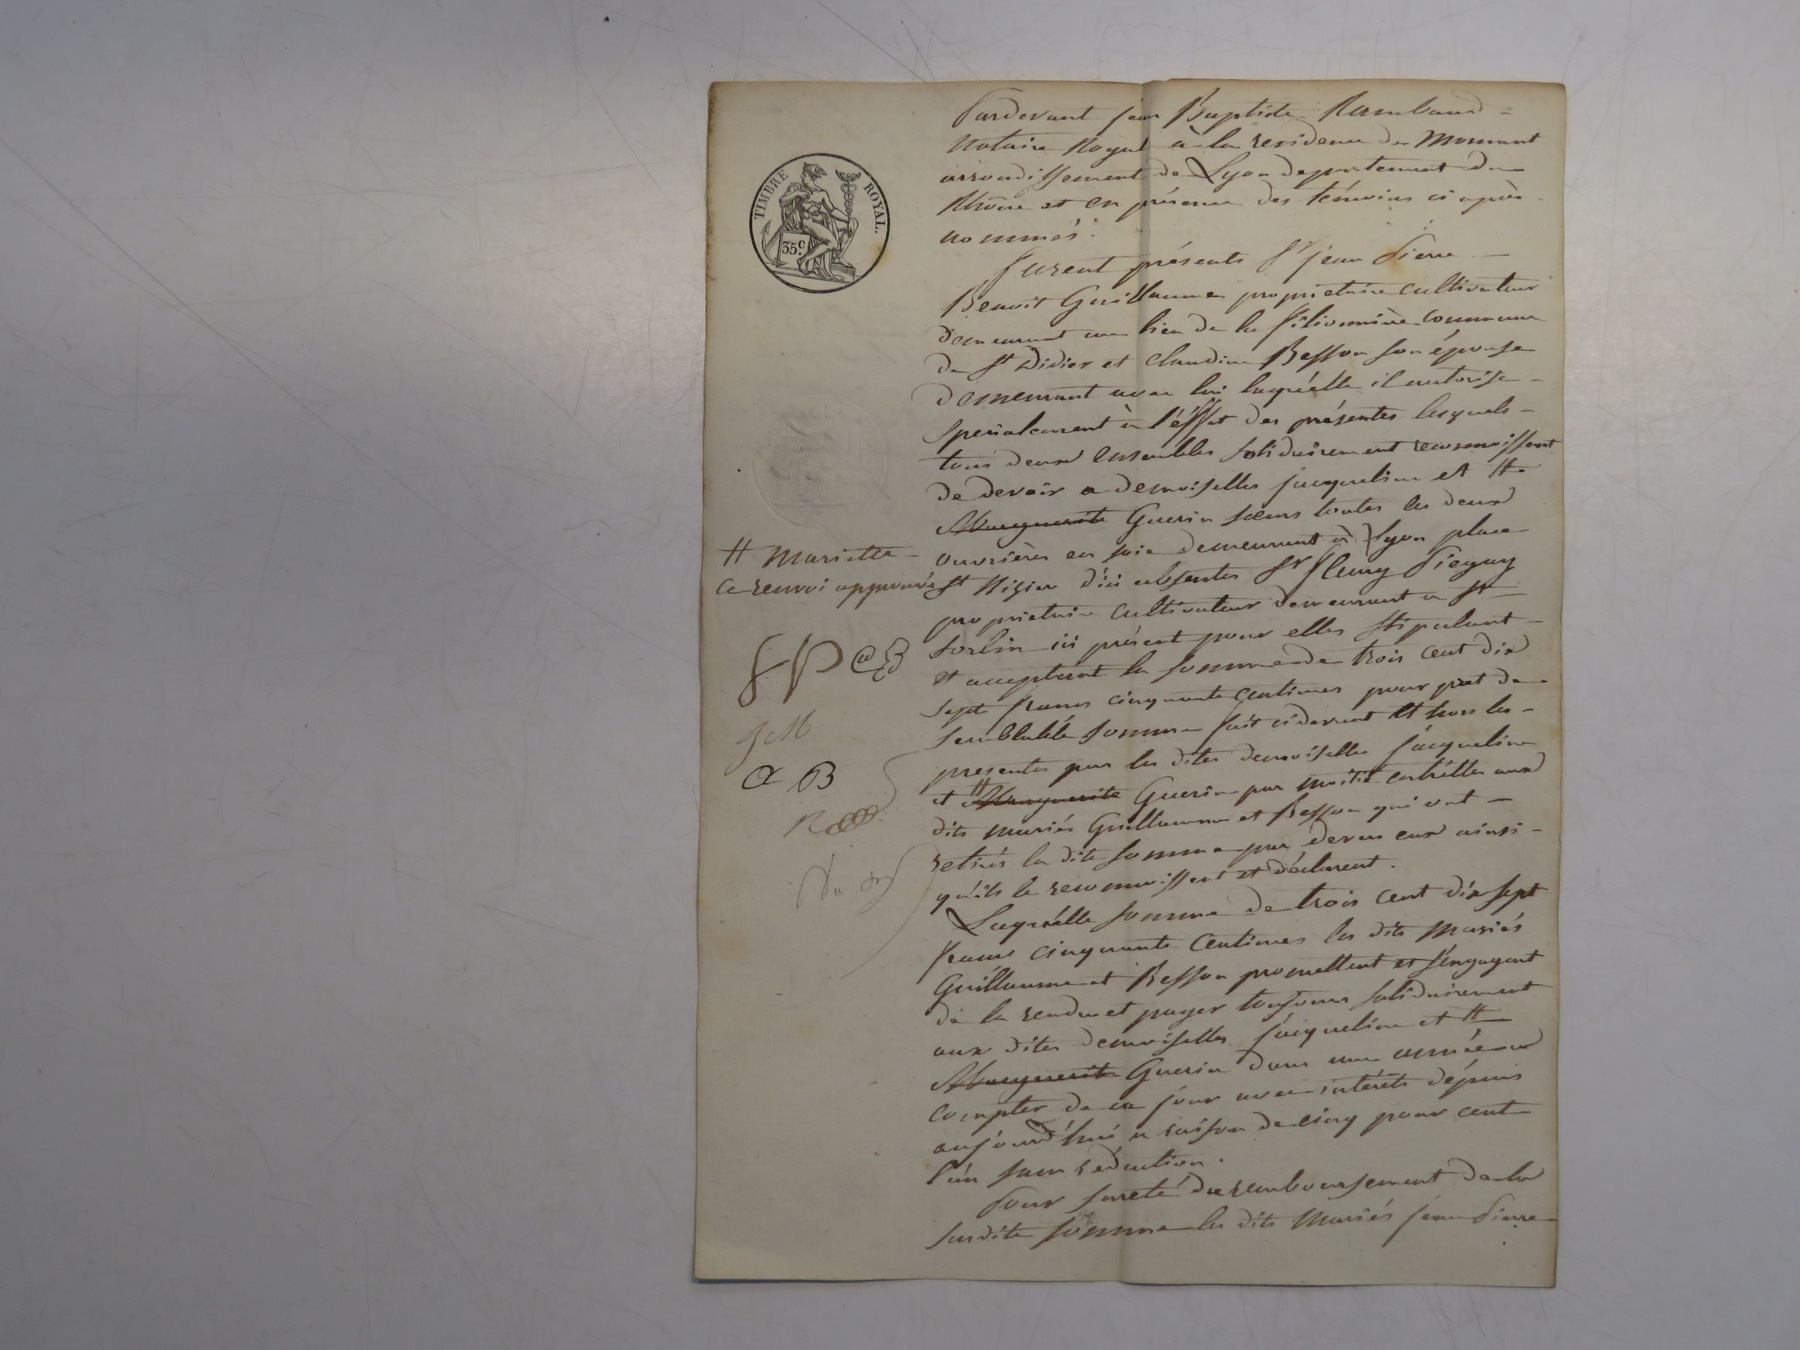 TIMBRE ROYAL.
35c.
Pardevant jean Baptiste Rambaud =
Notaire Royal à la residence de Mornant
arrondissement de Lyon departement du
Rhône et en présence des témoins ci après
nommés.
furent présents Sr jean Pierre —
Benoit Guillaume propriétaire cultivateur
demeurant au lieu de la commune
de St Didier et Claudine Besson son épouse
demeurant avec lui laquélle il autorise -
specialement à l'éffet des présentes lesquels -
tous deux ensembles solidairement reconnoissent
de devoir a demoiselles jacqueline et #
Marguerite Guerin sœurs toutes les deux
ouvrières en soie demeurant à Lyon place
# Mariette -
ce renvoi approuvé
St Nizier d'ici absentes Sr fleury
propriétaire cultivateur demeurant a St
Sorlin ici présent pour elles stipulant -
et acceptant la somme de trois cent dix
sept francs cinquante centimes pour pret de
semblable somme fait cidevant et hors les -
presentes par les dites demoiselles jacqueline
et # Marguerite Guerin par moitié entrélles aux
dits mariés Guillaume et Besson qui ont -
retirés la dite somme par devers eux ainsi -
qu'ils le reconnoissent et déclarent.
Laquélle somme de trois cent dix sept
francs cinquante centimes les dits mariés
Guillaume et Besson promettent et s'engagent
de la rendre et payer toujours solidairement
aux dites demoiselles jacqueline et #
Marguerite Guerin dans une année a
compter de ce jour avec intérêts dépuis
aujourd'hui a raison de cinq pour cent
l'an sans réduction.
Pour sureté du remboursement de la
susdite somme les dits mariés jean Pierre
fP CB
JM
CB